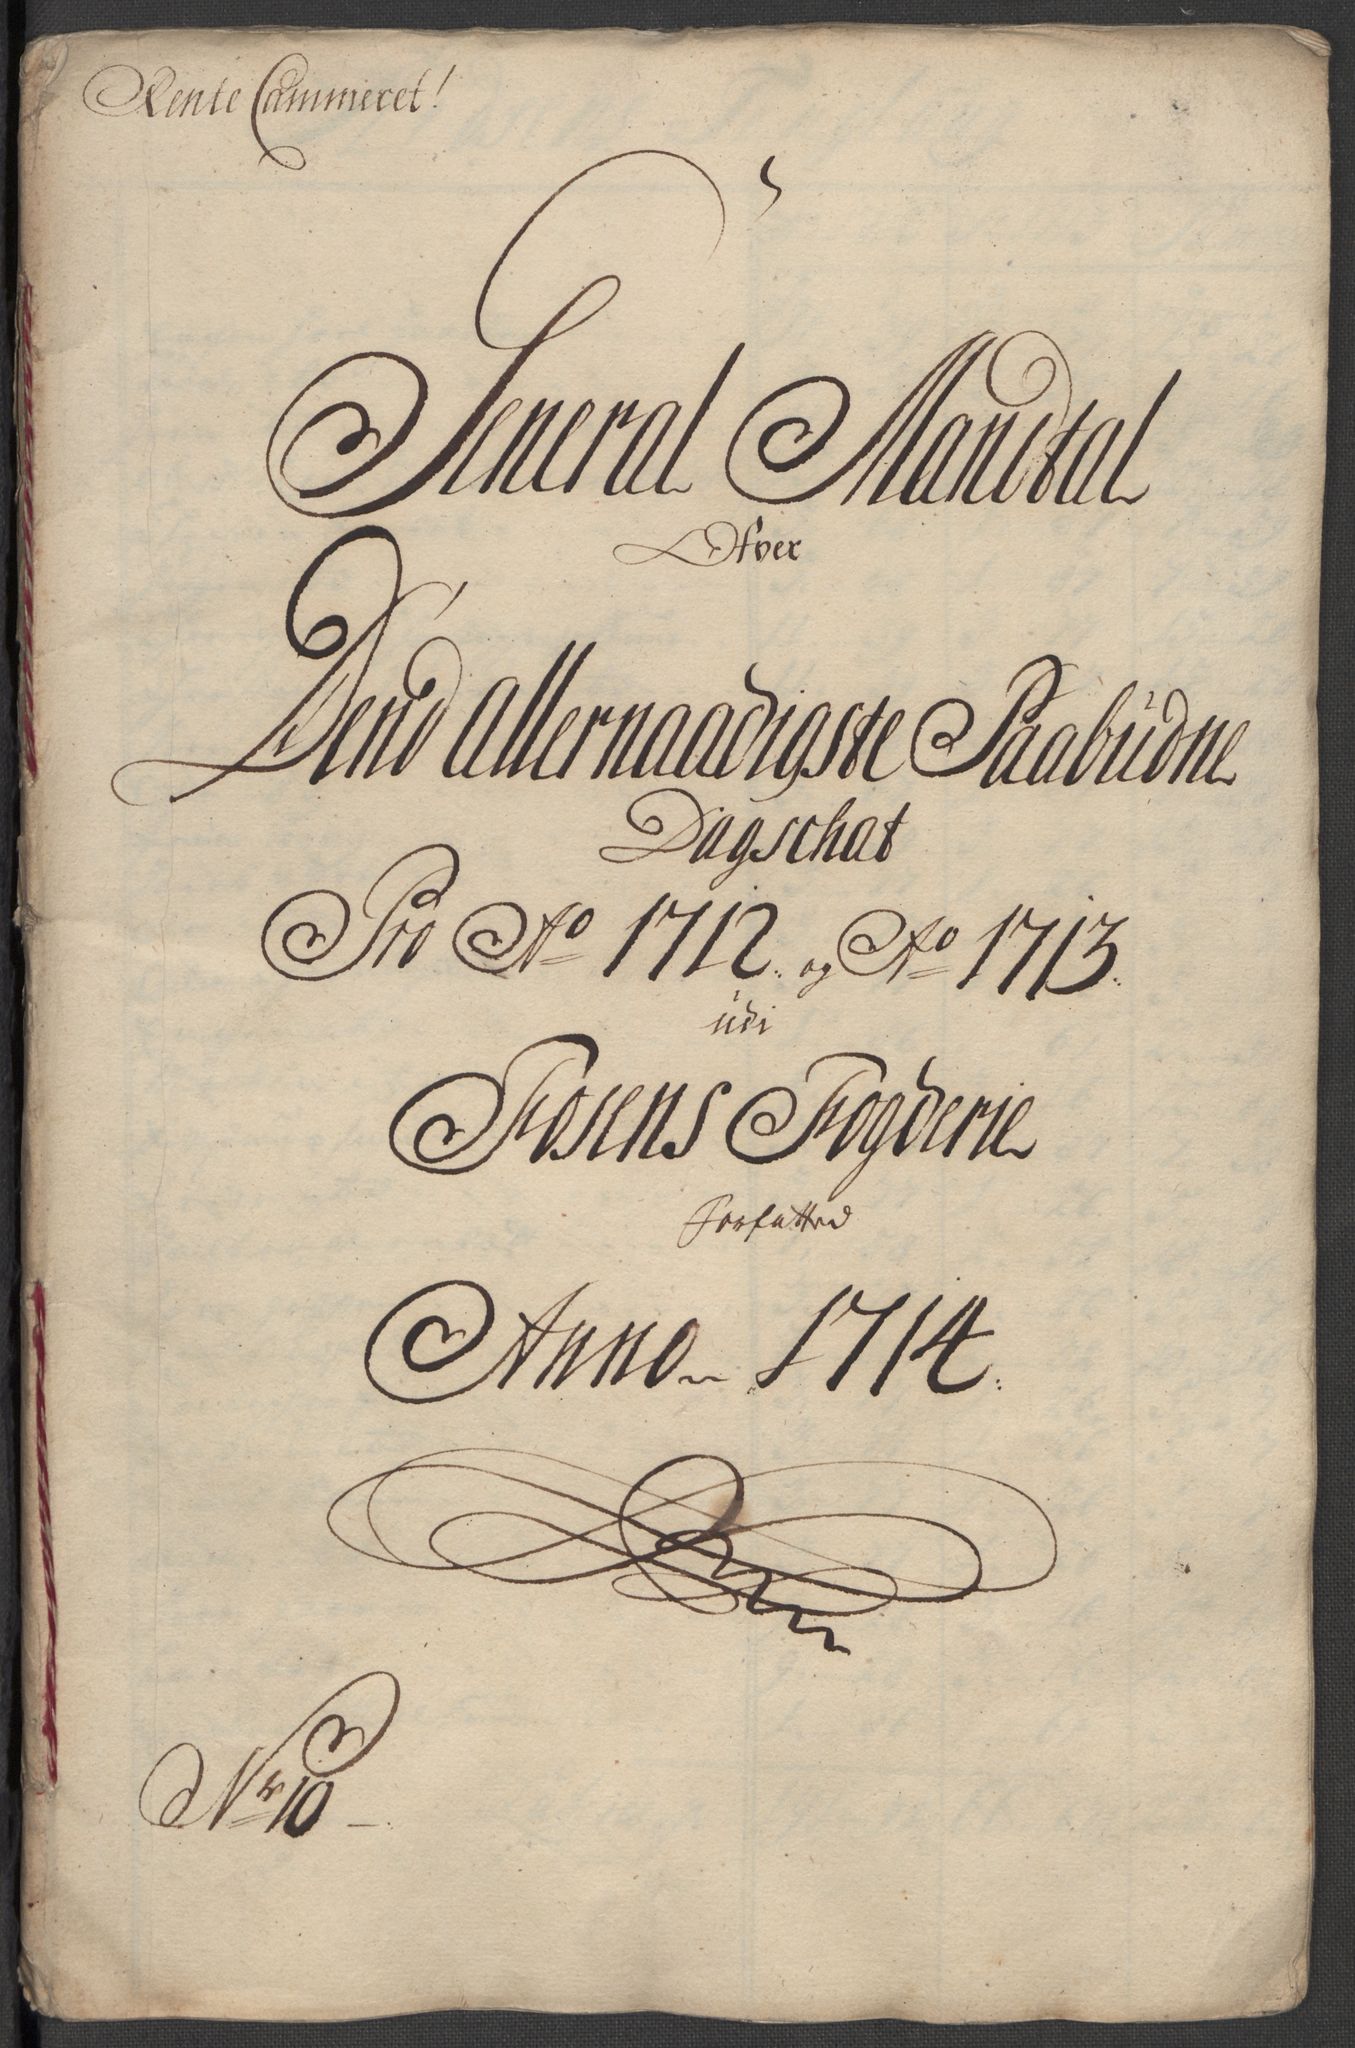 Rente Cammeret!
General Mandtal
Ofver
Dend allernaadigste Paabüdne
Dagschat
Pro Ao 1712. og Ao 1713.
üdi
Fosens Fogderie
Forfatted
Anno 1714.
Nr 10